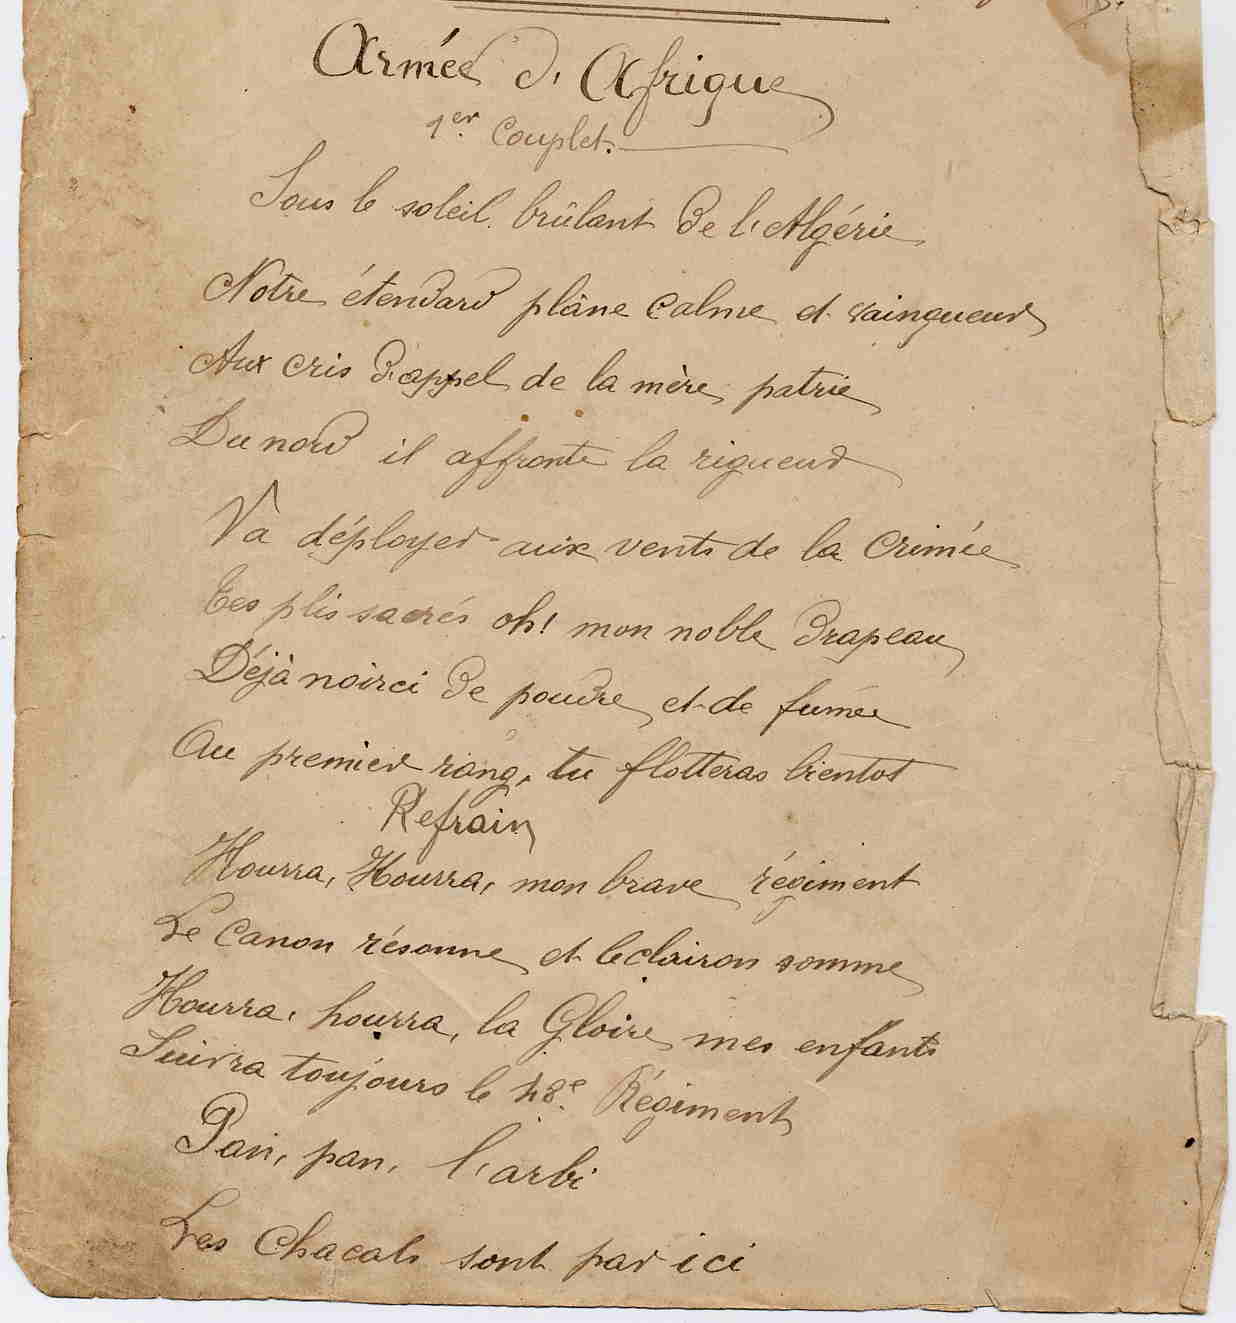 Armée d'Afrique
1er Couplet.
Sous le soleil brûlant de l'Algérie
Notre étendard plâne calme et vainqueur
Aux cris d'appel de la mère patrie
Du nord il affronte la rigueur
Va déployer aux vents de la Crimée
Tes plis sacrés oh! mon noble drapeau
Déjà noirci de poudre et de fumée
Au premier rang, tu flotteras bientot
Refrain
Hourra, Hourra, mon brave régiment
Le canon résonne et le clairon somme
Hourra, hourra, la Gloire mes enfants
Suivra toujours le 48e Régiment
Pan, pan, l'arbi
Les Chacals sont par ici